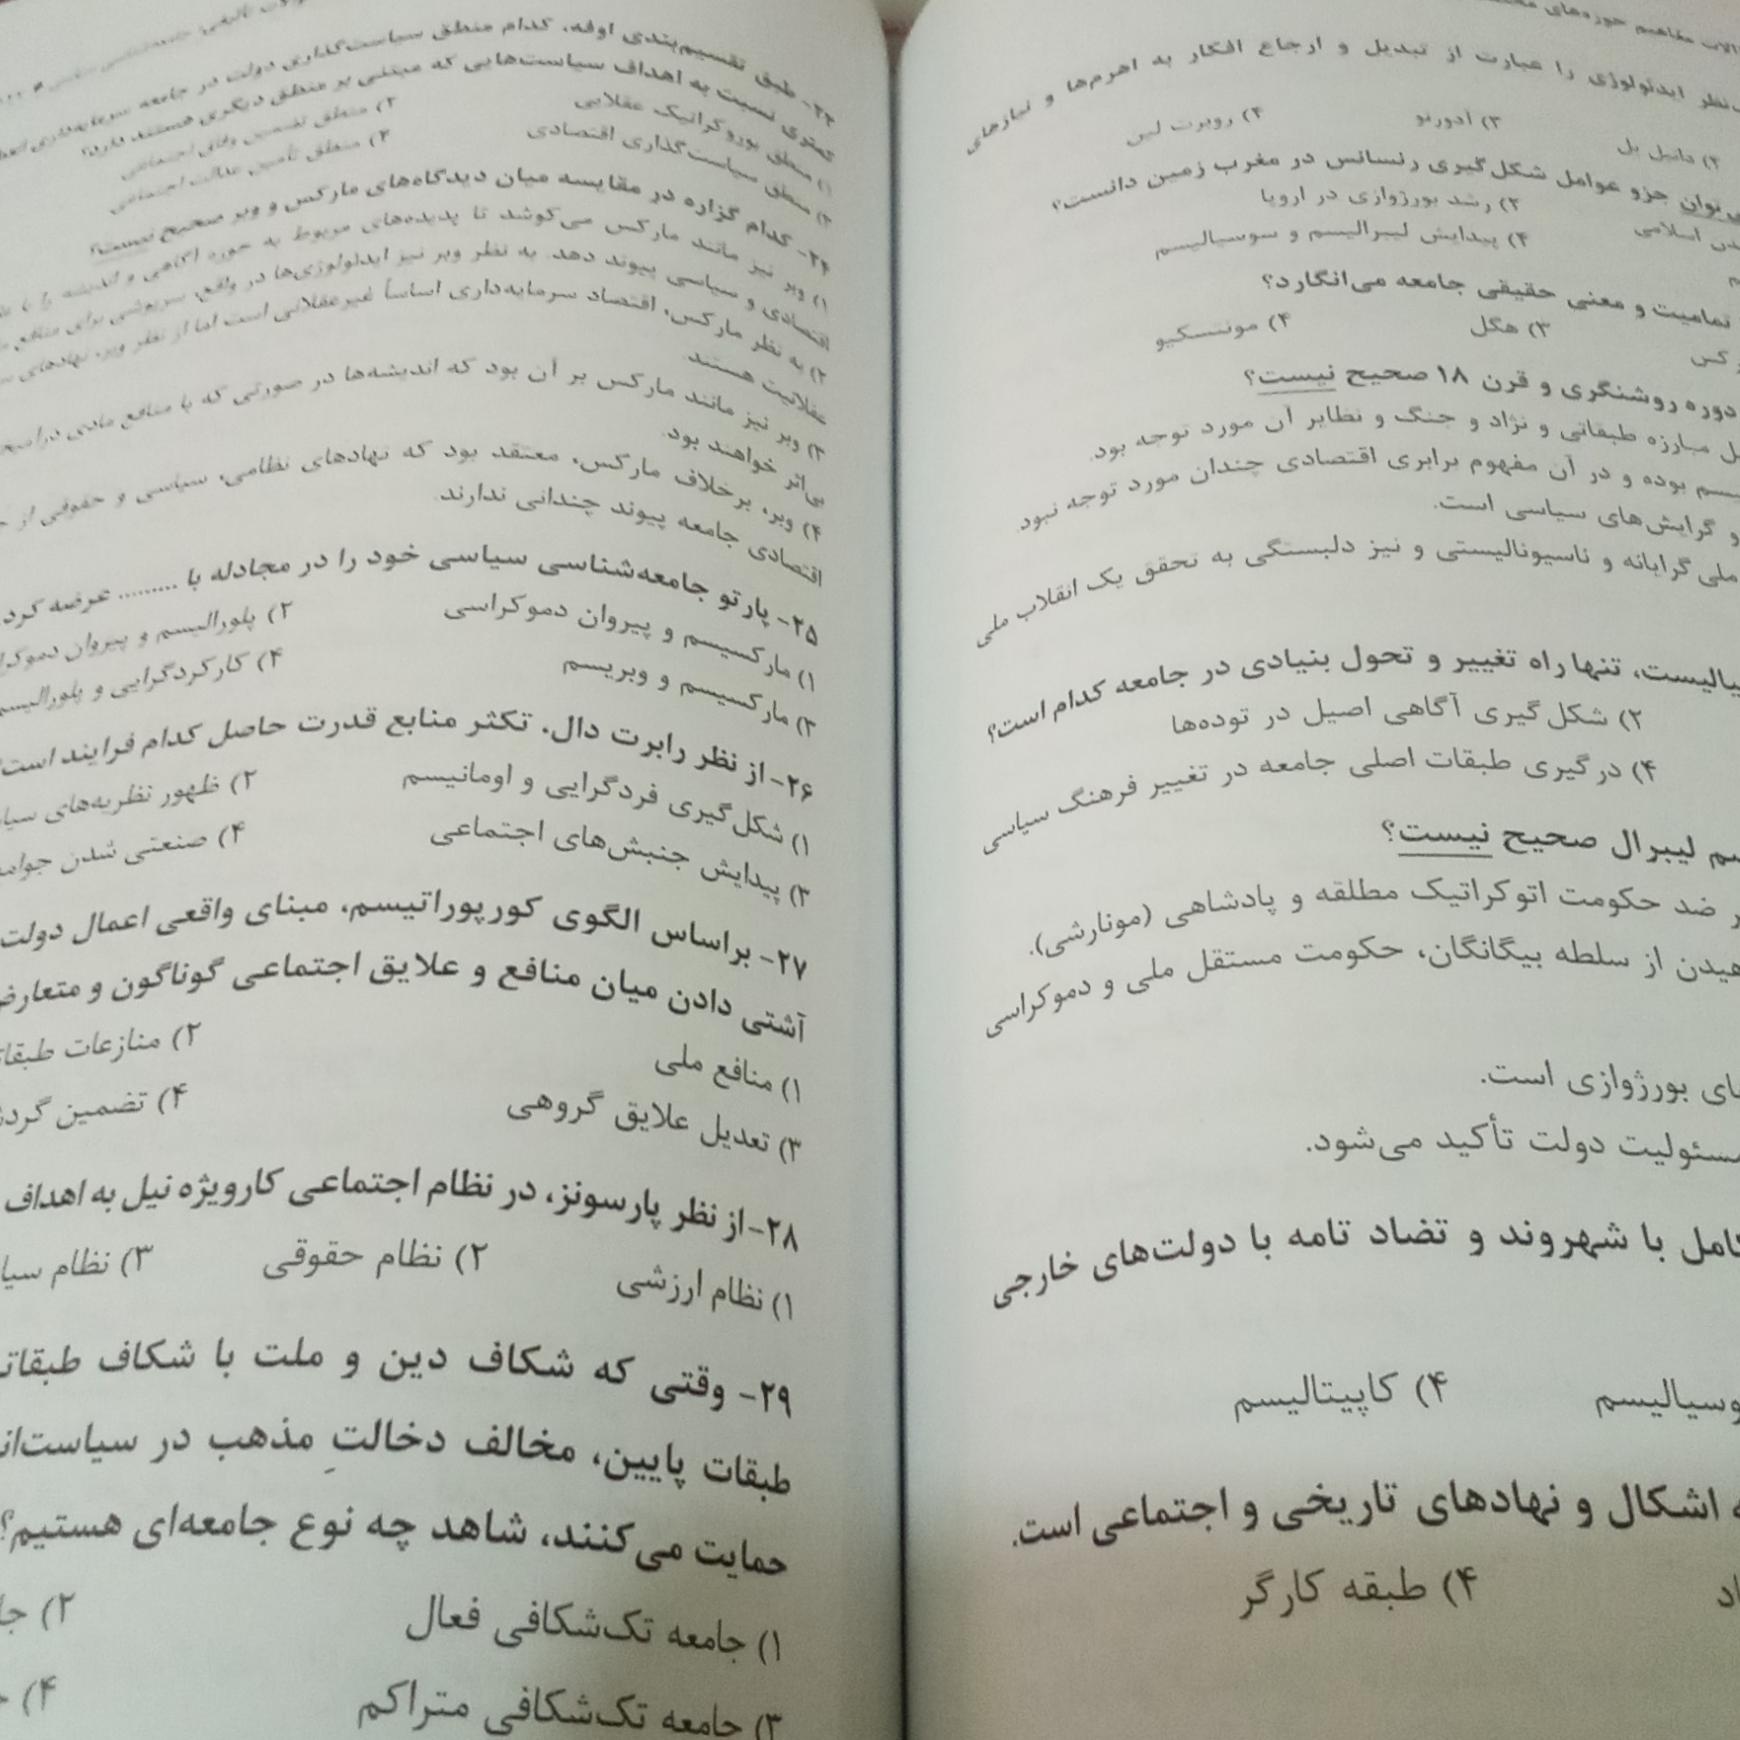 نظر ایدئولوژی را عبارت از تبدیل و ارجاع افکار به اهرم‌ها و نیازهای
۲) دانیل بل ۳) آدورنو ۴) روبرت لین
می‌توان جزو عوامل شکل‌گیری رنسانس در مغرب زمین دانست؟
۲) رشد بورژوازی در اروپا
اسلامی ۴) پیدایش لیبرالیسم و سوسیالیسم
تمامیت و معنی حقیقی جامعه می‌انگارد؟
۳) هگل ۴) مونتسکیو
دوره روشنگری و قرن ۱۸ صحیح نیست؟
مبارزه طبقاتی و نژاد و جنگ و نظایر آن مورد توجه بود.
بوده و در آن مفهوم برابری اقتصادی چندان مورد توجه نبود.
و گرایش‌های سیاسی است.
ملی‌گرایانه و ناسیونالیستی و نیز دلبستگی به تحقق یک انقلاب ملی
تنها راه تغییر و تحول بنیادی در جامعه کدام است؟
۲) شکل‌گیری آگاهی اصیل در توده‌ها
۴) درگیری طبقات اصلی جامعه در تغییر فرهنگ سیاسی
لیبرال صحیح نیست؟
ضد حکومت اتوکراتیک مطلقه و پادشاهی (مونارشی).
از سلطه بیگانگان، حکومت مستقل ملی و دموکراسی
بورژوازی است.
دولت تأکید می‌شود.
با شهروند و تضاد تامه با دولت‌های خارجی
۴) کاپیتالیسم
اشکال و نهادهای تاریخی و اجتماعی است.
۴) طبقه کارگر
۲۳- طبق تقسیم‌بندی اوفه، کدام منطق سیاست‌گذاری دولت در جامعه سرمایه‌داری
کمتری نسبت به اهداف سیاست‌هایی که مبتنی بر منطق دیگری هستند دارد؟
۱) منطق بوروکراتیک عقلایی ۲) منطق تضمین وفاق اجتماعی
۳) منطق سیاست‌گذاری اقتصادی ۴) منطق تأمین عدالت اجتماعی
۲۴- کدام گزاره در مقایسه میان دیدگاه‌های مارکس و وبر صحیح نیست؟
۱) وبر نیز مانند مارکس می‌کوشد تا پدیده‌های مربوط به حوزه آگاهی و اندیشه را با
اقتصادی و سیاسی پیوند دهد. به نظر وبر نیز ایدئولوژی‌ها در واقع، سرپوشی برای منافع
۲) به نظر مارکس، اقتصاد سرمایه‌داری اساساً غیرعقلانی است اما از نظر وبر، نهادهای
عقلانیت هستند
۳) وبر نیز مانند مارکس بر آن بود که اندیشه‌ها در صورتی که با منافع مادی
بی‌اثر خواهند بود.
۴) وبر، برخلاف مارکس، معتقد بود که نهادهای نظامی، سیاسی و حقوقی از
اقتصادی جامعه پیوند چندانی ندارند.
۲۵- پارتو جامعه‌شناسی سیاسی خود را در مجادله با ......... عرضه کرد
۱) مارکسیسم و پیروان دموکراسی ۲) پلورالیسم و پیروان
۳) مارکسیسم و وبریسم ۴) کارکردگرایی و پلورالیسم
۲۶- از نظر رابرت دال، تکثر منابع قدرت حاصل کدام فرایند است
۱) شکل‌گیری فردگرایی و اومانیسم ۲) ظهور نظریه‌های
۳) پیدایش جنبش‌های اجتماعی ۴) صنعتی شدن
۲۷- براساس الگوی کورپوراتیسم، مبنای واقعی اعمال دولت
آشتی دادن میان منافع و علایق اجتماعی گوناگون و
۱) منافع ملی ۲) منازعات
۳) تعدیل علایق گروهی ۴) تضمین
۲۸- از نظر پارسونز، در نظام اجتماعی کارویژه نیل به اهداف
۱) نظام ارزشی ۲) نظام حقوقی ۳) نظام
۲۹- وقتی که شکاف دین و ملت با شکاف
طبقات پایین، مخالف دخالتِ مذهب در
حمایت می‌کنند، شاهد چه نوع جامعه‌ای هستیم؟
۱) جامعه تک‌شکافی فعال ۲)
۳) جامعه تک‌شکافی متراکم ۴)